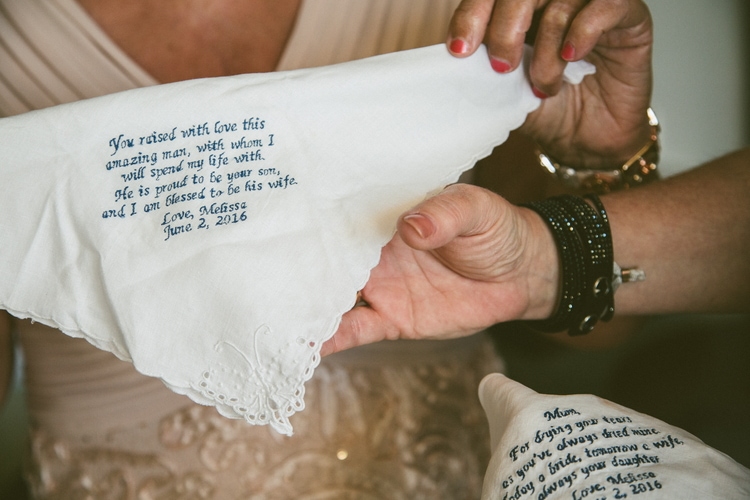 You raised with love this
amazing man, with whom I
will spend my life with.
He is proud to be your son,
and I am blessed to be his wife.
Love, Melissa
June 2, 2016
Mum,
For drying your tears
as you've always dried mine
today a bride, tomorrow a wife,
always your daughter
Love, Melissa
2, 2016